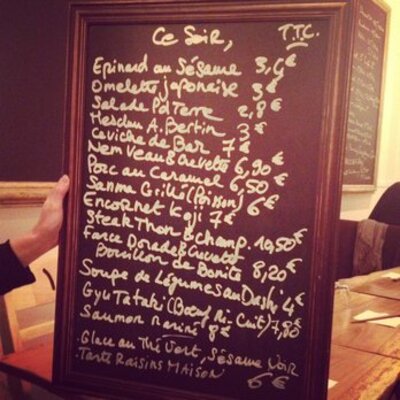 Ce Soir, T.T.C.
Epinard au Sésame 3,4€
Omelette japonaise 3€
Salade Pd Terre 2,8€
Mesclun A. Bertin 3€
Ceviche de Bar 7€
Nem Veau & Crevette 6,90€
Porc au Caramel 6,50€
Sanma Grillé (Poisson) 6€
Encornet Koji 7€
Steak Thon & Champ. 10,50€
Farce Dorade & Crevette
Bouillon de Bonite 8,20€
Soupe de Légumes au Dashi 4€
Gyu Tataki (Boeuf Mi-Cuit) 7,80€
Saumon mariné 8€
- Glace au Thé Vert, Sésame Noir
- Tarte Raisins MAISON 6€